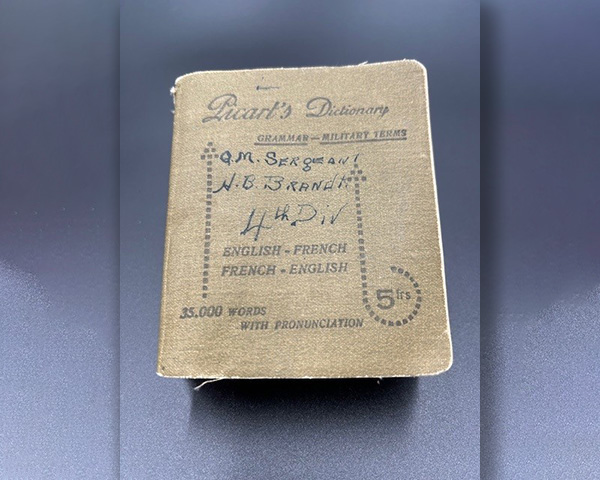 Picart's Dictionary
GRAMMAR — MILITARY TERMS
Q.M. SERGEANT
4th Div
ENGLISH - FRENCH
FRENCH - ENGLISH
5 frs
35.000 WORDS
WITH PRONUNCIATION